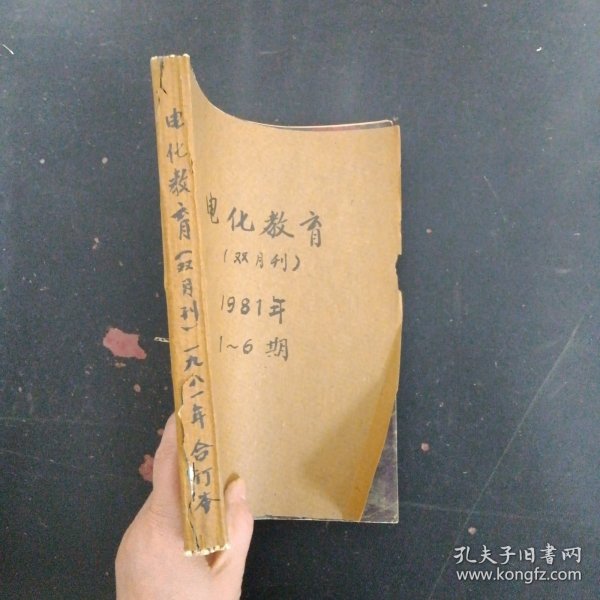 电化教育(双月刊)一九八一年 合订本
电化教育
(双月刊)
1981年
1~6期
孔夫子旧书网
www.kongfz.com